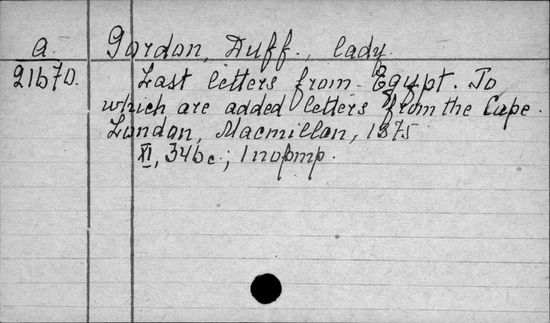 a. Gordon, Duff., lady.
21670. Last letters from Egypt. To
which are added letters from the Cape.
London, Macmillan, 1875
XI, 346 c.; 1 портр.